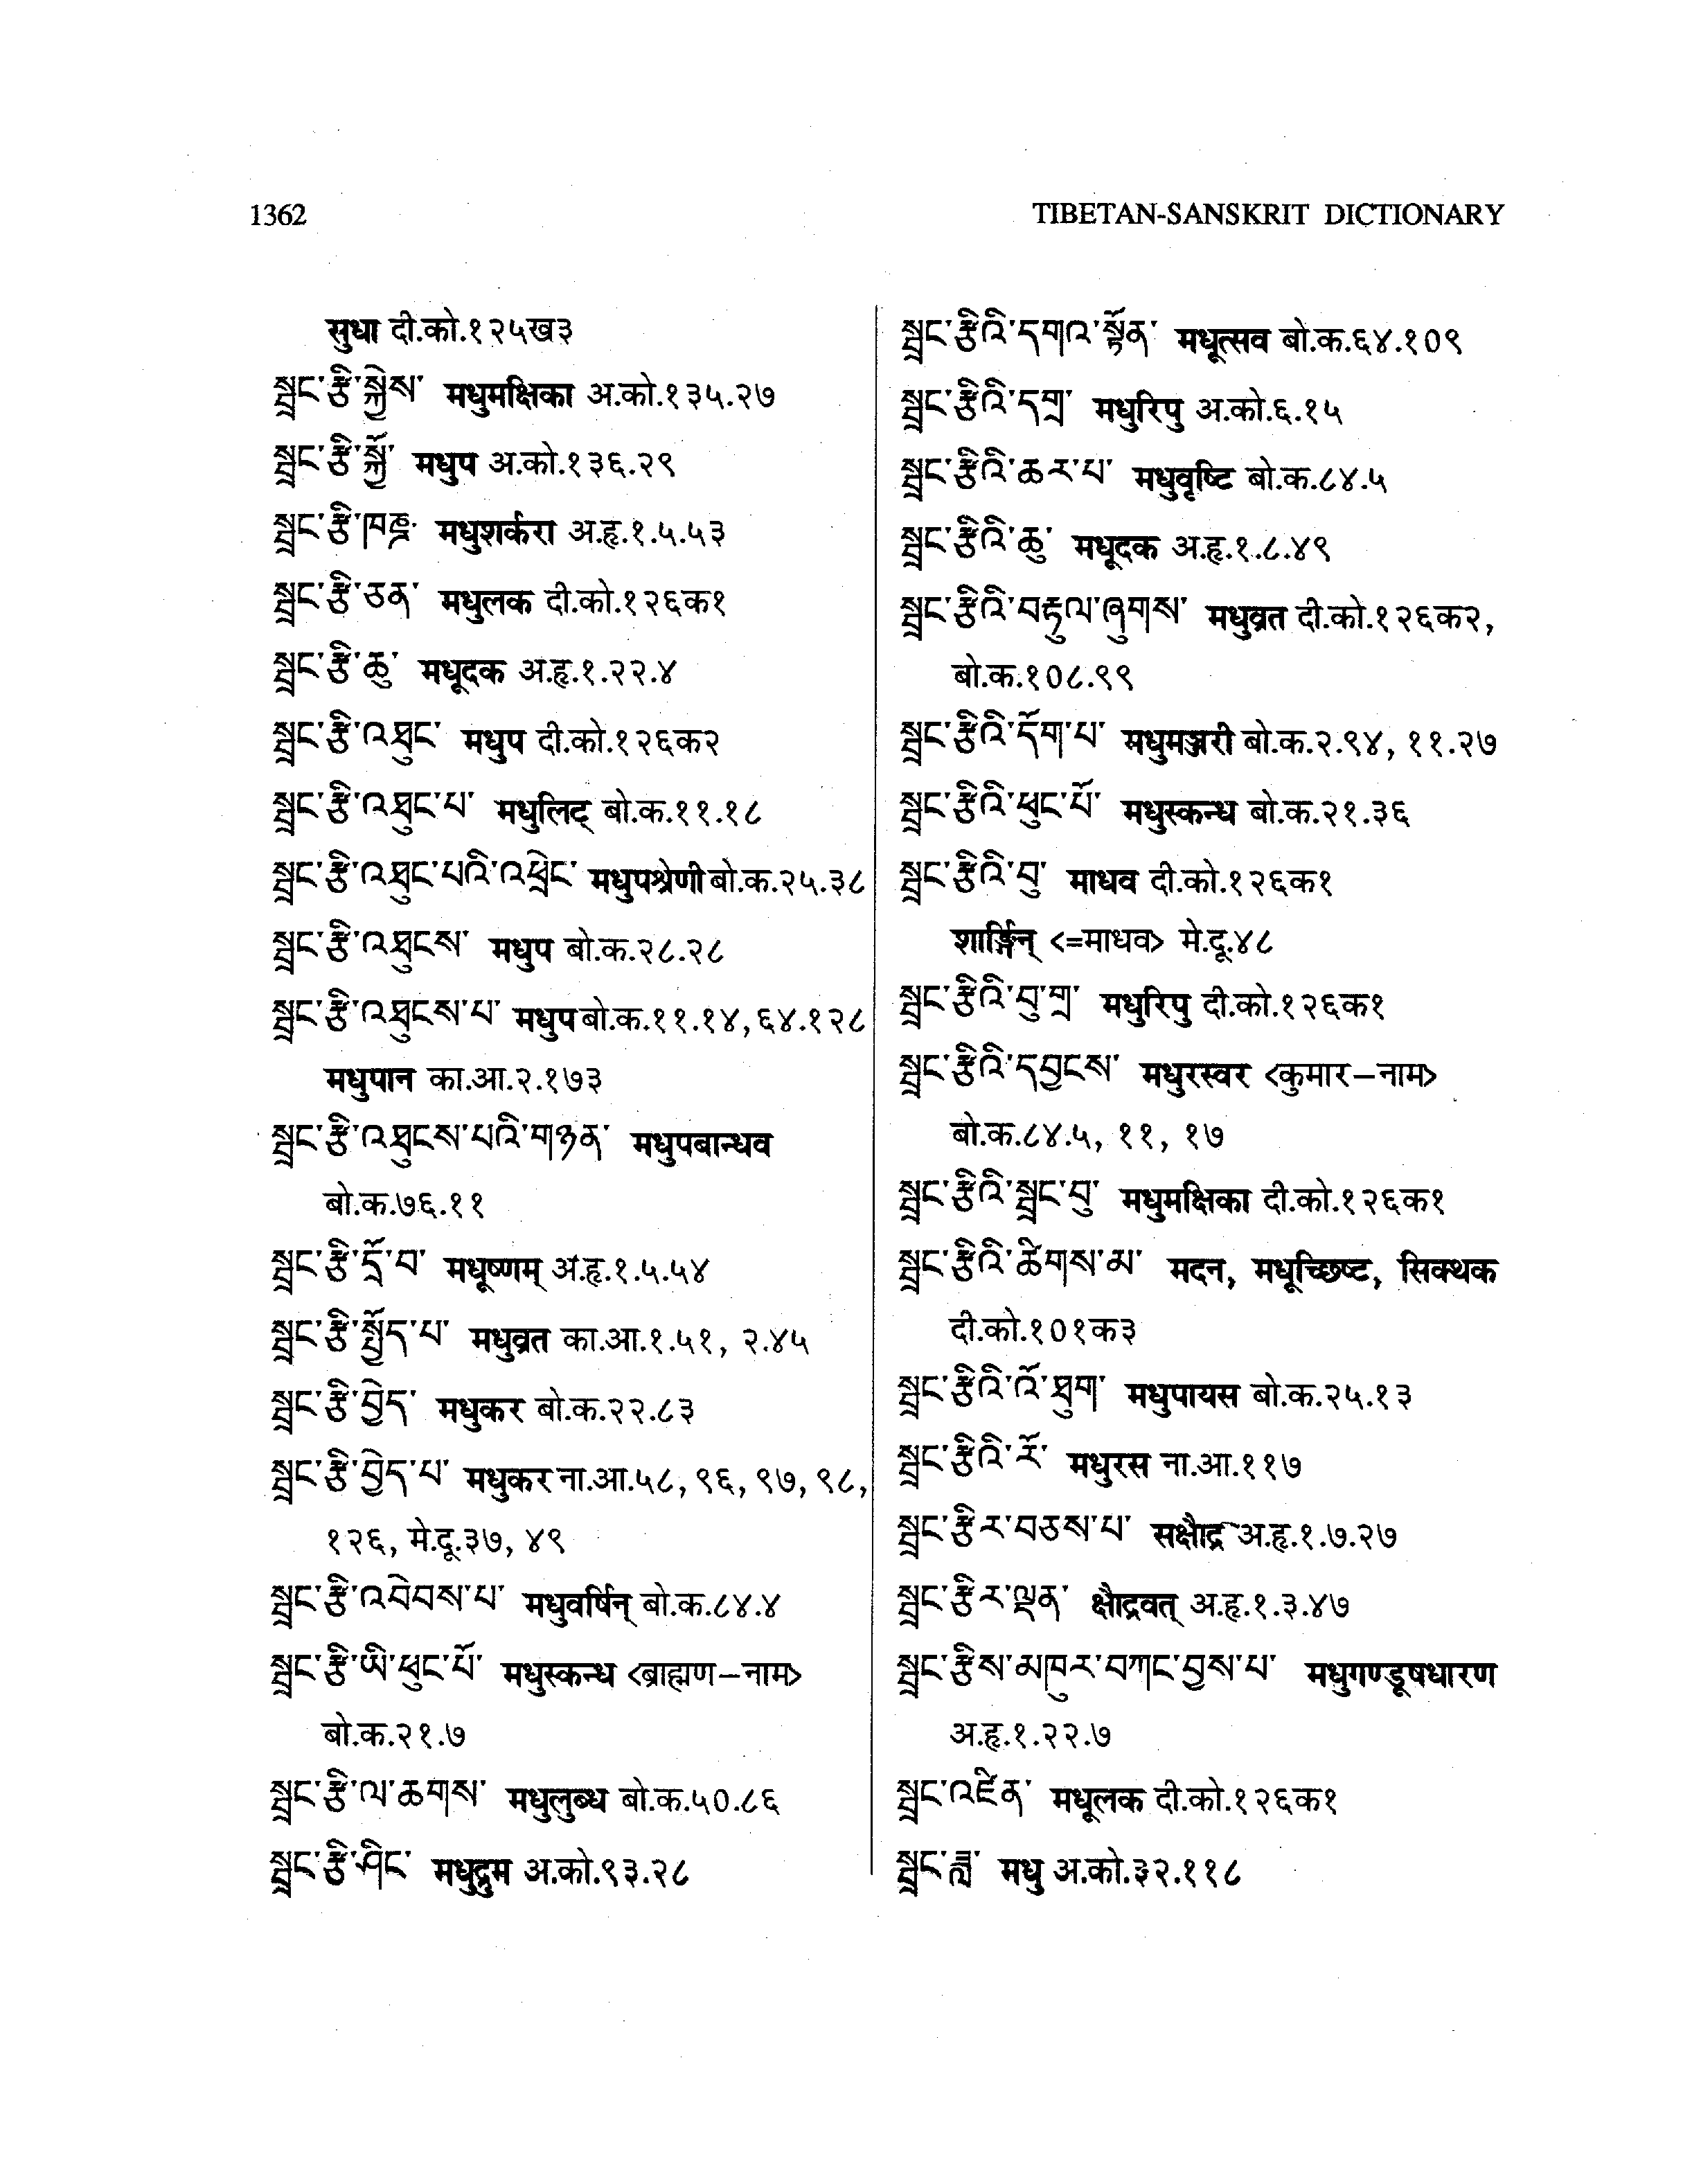 1362
TIBETAN-SANSKRIT DICTIONARY
सुधा दी.को.१२५ख३
སྦྲང་རྩི་སྐྱེས་ मधुमक्षिका अ.को.१३५.२७
སྦྲང་རྩི་སྐྱོ་ मधुप अ.को.१३६.२९
སྦྲང་རྩི་ཁཎྜ་ मधुशर्करा अ.हृ.१.५.५३
སྦྲང་རྩི་ཅན་ मधुलक दी.को.१२६क१
སྦྲང་རྩི་ཆུ་ मधूदक अ.हृ.१.२२.४
སྦྲང་རྩི་འཐུང་ मधुप दी.को.१२६क२
སྦྲང་རྩི་འཐུང་པ་ मधुलिट् बो.क.११.१८
སྦྲང་རྩི་འཐུང་པའི་འཕྲེང་ मधुपश्रेणी बो.क.२५.३८
སྦྲང་རྩི་འཐུངས་ मधुप बो.क.२८.२८
སྦྲང་རྩི་འཐུངས་པ་ मधुप बो.क.११.१४, ६४.१२८
मधुपान का.आ.२.१७३
སྦྲང་རྩི་འཐུངས་པའི་གཉེན་ मधुपबान्धव
बो.क.७६.११
སྦྲང་རྩི་དྲོ་བ་ मधूष्णम् अ.हृ.१.५.५४
སྦྲང་རྩི་སྤྱོད་པ་ मधुव्रत का.आ.१.५१, २.४५
སྦྲང་རྩི་བྱེད་ मधुकर बो.क.२२.८३
སྦྲང་རྩི་བྱེད་པ་ मधुकर ना.आ.५८, ९६, ९७, ९८,
१२६, मे.दू.३७, ४९
སྦྲང་རྩི་འབེབས་པ་ मधुवर्षिन् बो.क.८४.४
སྦྲང་རྩི་ཡི་ཕུང་པོ་ मधुस्कन्ध <ब्राह्मण–नाम>
बो.क.२१.७
སྦྲང་རྩི་ལ་ཆགས་ मधुलुब्ध बो.क.५०.८६
སྦྲང་རྩི་ཤིང་ मधुद्रुम अ.को.९३.२८
སྦྲང་རྩིའི་དགའ་སྟོན་ मधूत्सव बो.क.६४.१०९
སྦྲང་རྩིའི་དགྲ་ मधुरिपु अ.को.६.१५
སྦྲང་རྩིའི་ཆར་པ་ मधुवृष्टि बो.क.८४.५
སྦྲང་རྩིའི་ཆུ་ मधूदक अ.हृ.१.८.४९
སྦྲང་རྩིའི་བརྟུལ་ཞུགས་ मधुव्रत दी.को.१२६क२,
बो.क.१०८.९९
སྦྲང་རྩིའི་དོག་པ་ मधुमञ्जरी बो.क.२.९४, ११.२७
སྦྲང་རྩིའི་ཕུང་པོ་ मधुस्कन्ध बो.क.२१.३६
སྦྲང་རྩིའི་བུ་ माधव दी.को.१२६क१
शार्ङ्गिन् <=माधव> मे.दू.४८
སྦྲང་རྩིའི་བུ་གྲ་ मधुरिपु दी.को.१२६क१
སྦྲང་རྩིའི་དབྱངས་ मधुरस्वर <कुमार–नाम>
बो.क.८४.५, ११, १७
སྦྲང་རྩིའི་སྦྲང་བུ་ मधुमक्षिका दी.को.१२६क१
སྦྲང་རྩིའི་ཚིགས་མ་ मदन, मधूच्छिष्ट, सिक्थक
दी.को.१०१क३
སྦྲང་རྩིའི་འོ་ཐུག་ मधुपायस बो.क.२५.१३
སྦྲང་རྩིའི་རོ་ मधुरस ना.आ.११७
སྦྲང་རྩིར་བཅས་པ་ सक्षौद्र अ.हृ.१.७.२७
སྦྲང་རྩིར་ལྡན་ क्षौद्रवत् अ.हृ.१.३.४७
སྦྲང་རྩིས་མཁུར་བཀང་བྱས་པ་ मधुगण्डूषधारण
अ.हृ.१.२२.७
སྦྲང་འཛིན་ मधूलक दी.को.१२६क१
སྦྲང་ मधु अ.को.३२.११८